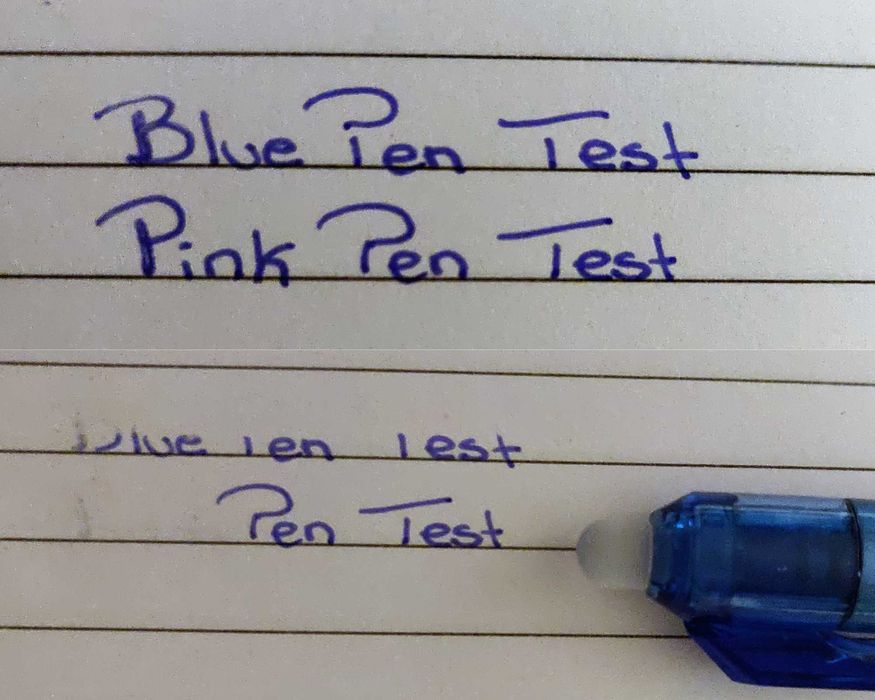 Blue Pen Test
Pink Pen Test
Blue Pen Test
Pen Test